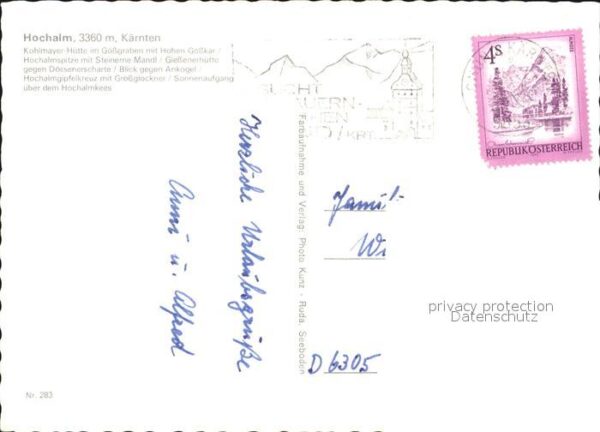 Hochalm, 3360 m, Kärnten
Kohlmayer-Hütte im Gößgraben mit Hohen Gößkar /
Hochalmspitze mit Steinerne Mandl / Gießenerhütte
gegen Dösenerscharte / Blick gegen Ankogel /
Hochalmgipfelkreuz mit Großglockner / Sonnenaufgang
über dem Hochalmkees
4S
REPUBLIK ÖSTERREICH
Herzliche Urlaubsgrüße
Anni u. Alfred
Farbaufnahme und Verlag: Photo Kunz - Ruda, Seeboden
Famili
Wi
D 6305
privacy protection
Datenschutz
Nr. 283